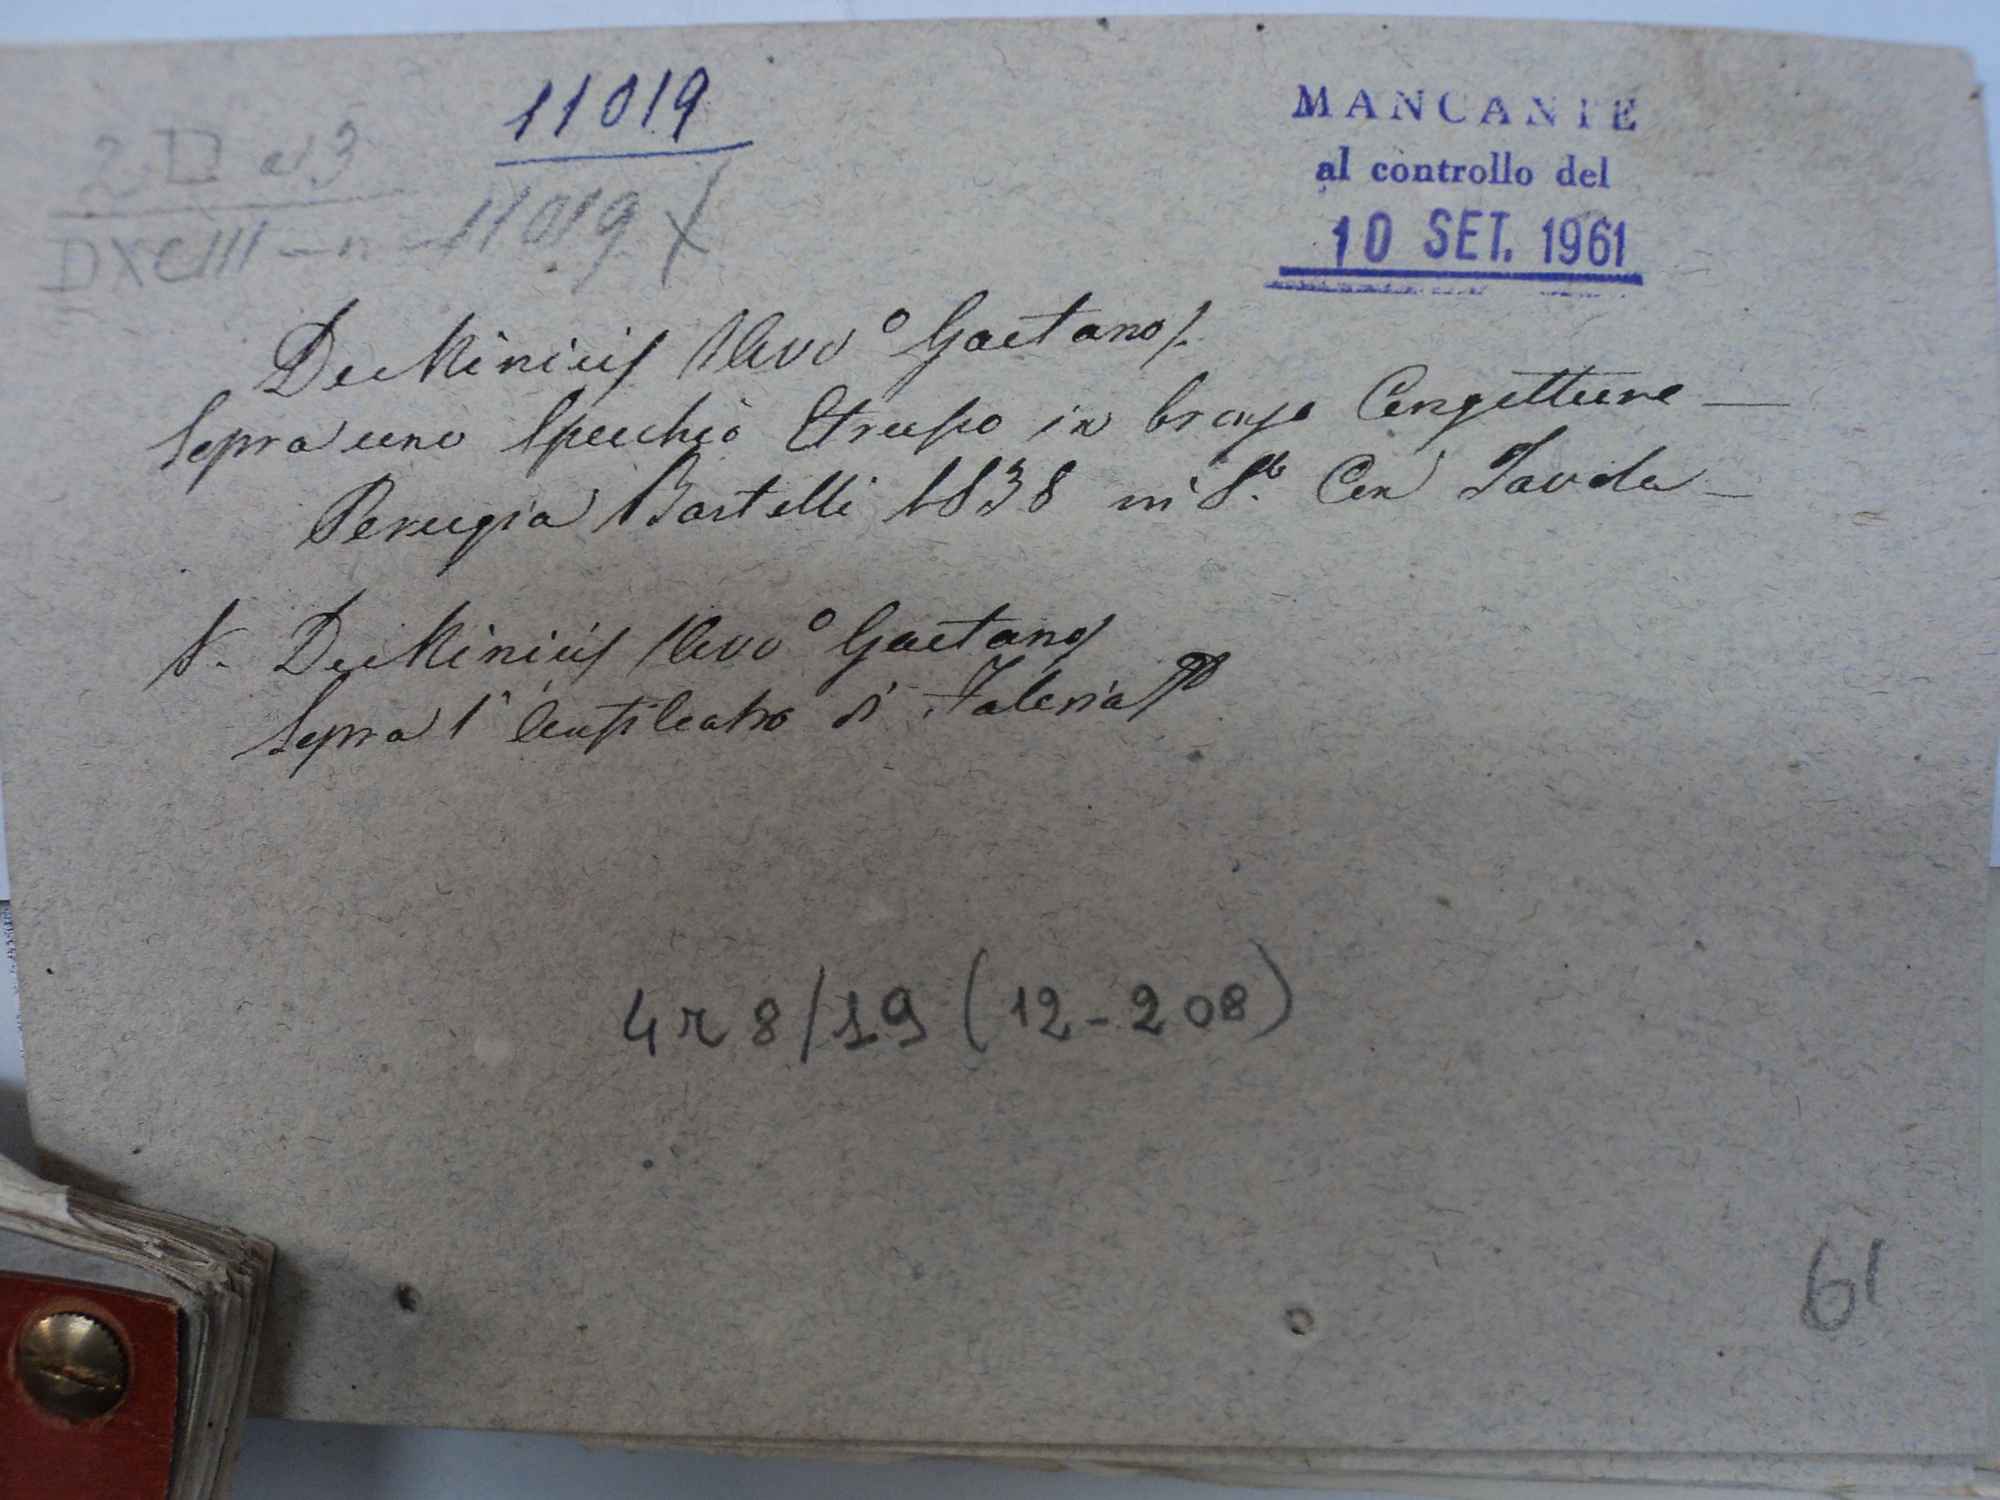 11019
MANCANTE
al controllo del
10 SET. 1961
DXCIII - n - 11019 X
De Minicis Avvo Gaetano
Sopra uno Specchio Etrusco in bronzo Congetture —
Perugia Bartelli 1838 in 8.º Con Tavola —
De Minicis Avvo Gaetano
Sopra l'Anfiteatro di Faleria
4 r 8/19 (12-208)
61